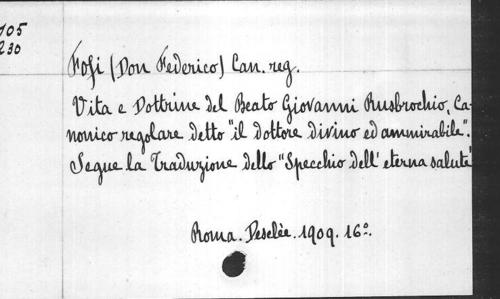 105
230
Fosi (Don Federico) Can. reg.
Vita e Dottrine del Beato Giovanni Rusbrochio, Ca-
nonico regolare detto "il dottore divino ed ammirabile".
Segue la Traduzione dello "Specchio dell' eterna salute"
Roma. Desclèe. 1909. 16º.